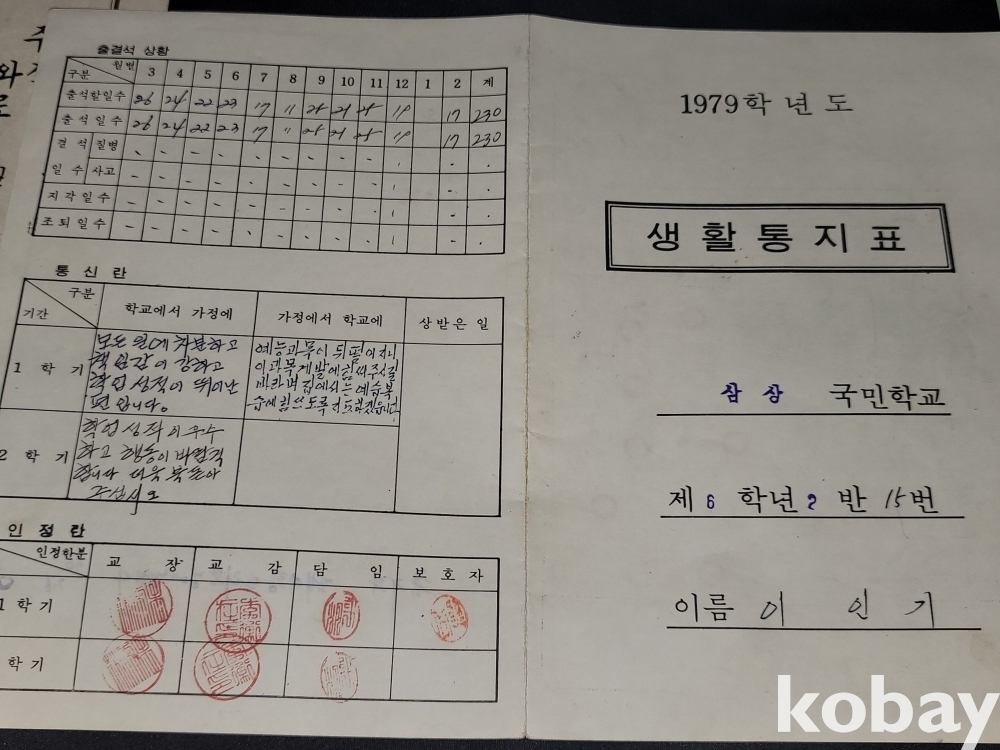 출결석 상황
월별
구분 3 4 5 6 7 8 9 10 11 12 1 2 계
출석할일수 26 24 22 23 17 11 21 21 21 19 17 230
출석일수 26 24 22 23 17 11 21 21 21 19 17 230
결석 질병
일수 사고
지각일수
조퇴일수
통신란
구분
기간 학교에서 가정에 가정에서 학교에 상받은 일
1 학기
모든 일에 차분하고
책임감이 강하고
학업 성적이 뛰어난
편입니다.
예능과목이
바라며 집에서는 예습복
습에 힘쓰도록
2 학기
학업 성적이 우수
하고 행동이 바람직
합니다 더욱 북돋아
주십시오
인정란
인정한분 교장 교감 담임 보호자
1학기
학기
1979학년도
생활통지표
삼상 국민학교
제 6 학년 2 반 15번
이름 이 인 기
kobay